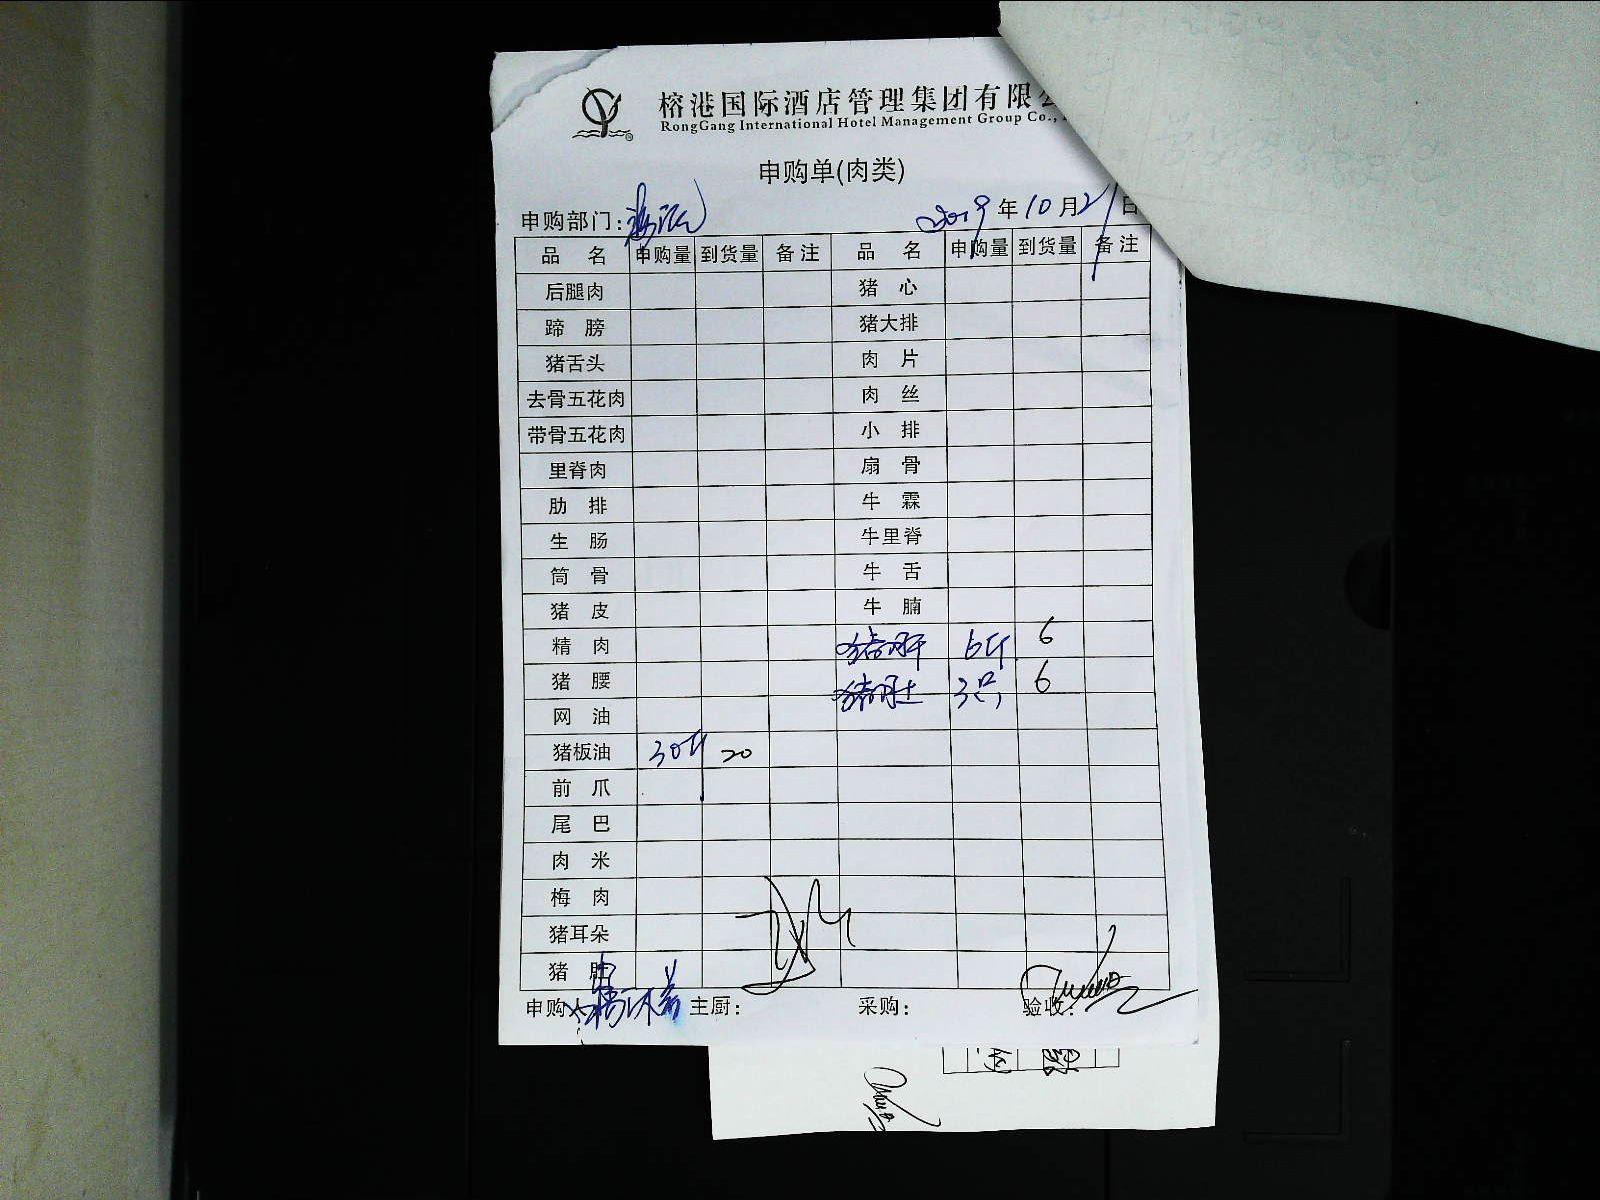 榕港国际酒店管理集团有限
RongGang International Hotel Management Group Co.,
申购单(肉类)
申购部门: 2019年10月21日
品名 申购量 到货量 备注 品名 申购量 到货量 备注
后腿肉 猪心
蹄膀 猪大排
猪舌头 肉片
去骨五花肉 肉丝
带骨五花肉 小排
里脊肉 扇骨
肋排 牛霖
生肠 牛里脊
筒骨 牛舌
猪皮 牛腩
精肉 猪肝 6斤 6
猪腰 猪肚 3只 6
网油
猪板油 30斤 20
前爪
尾巴
肉米
梅肉
猪耳朵
猪肚
申购人 主厨: 采购: 验收: